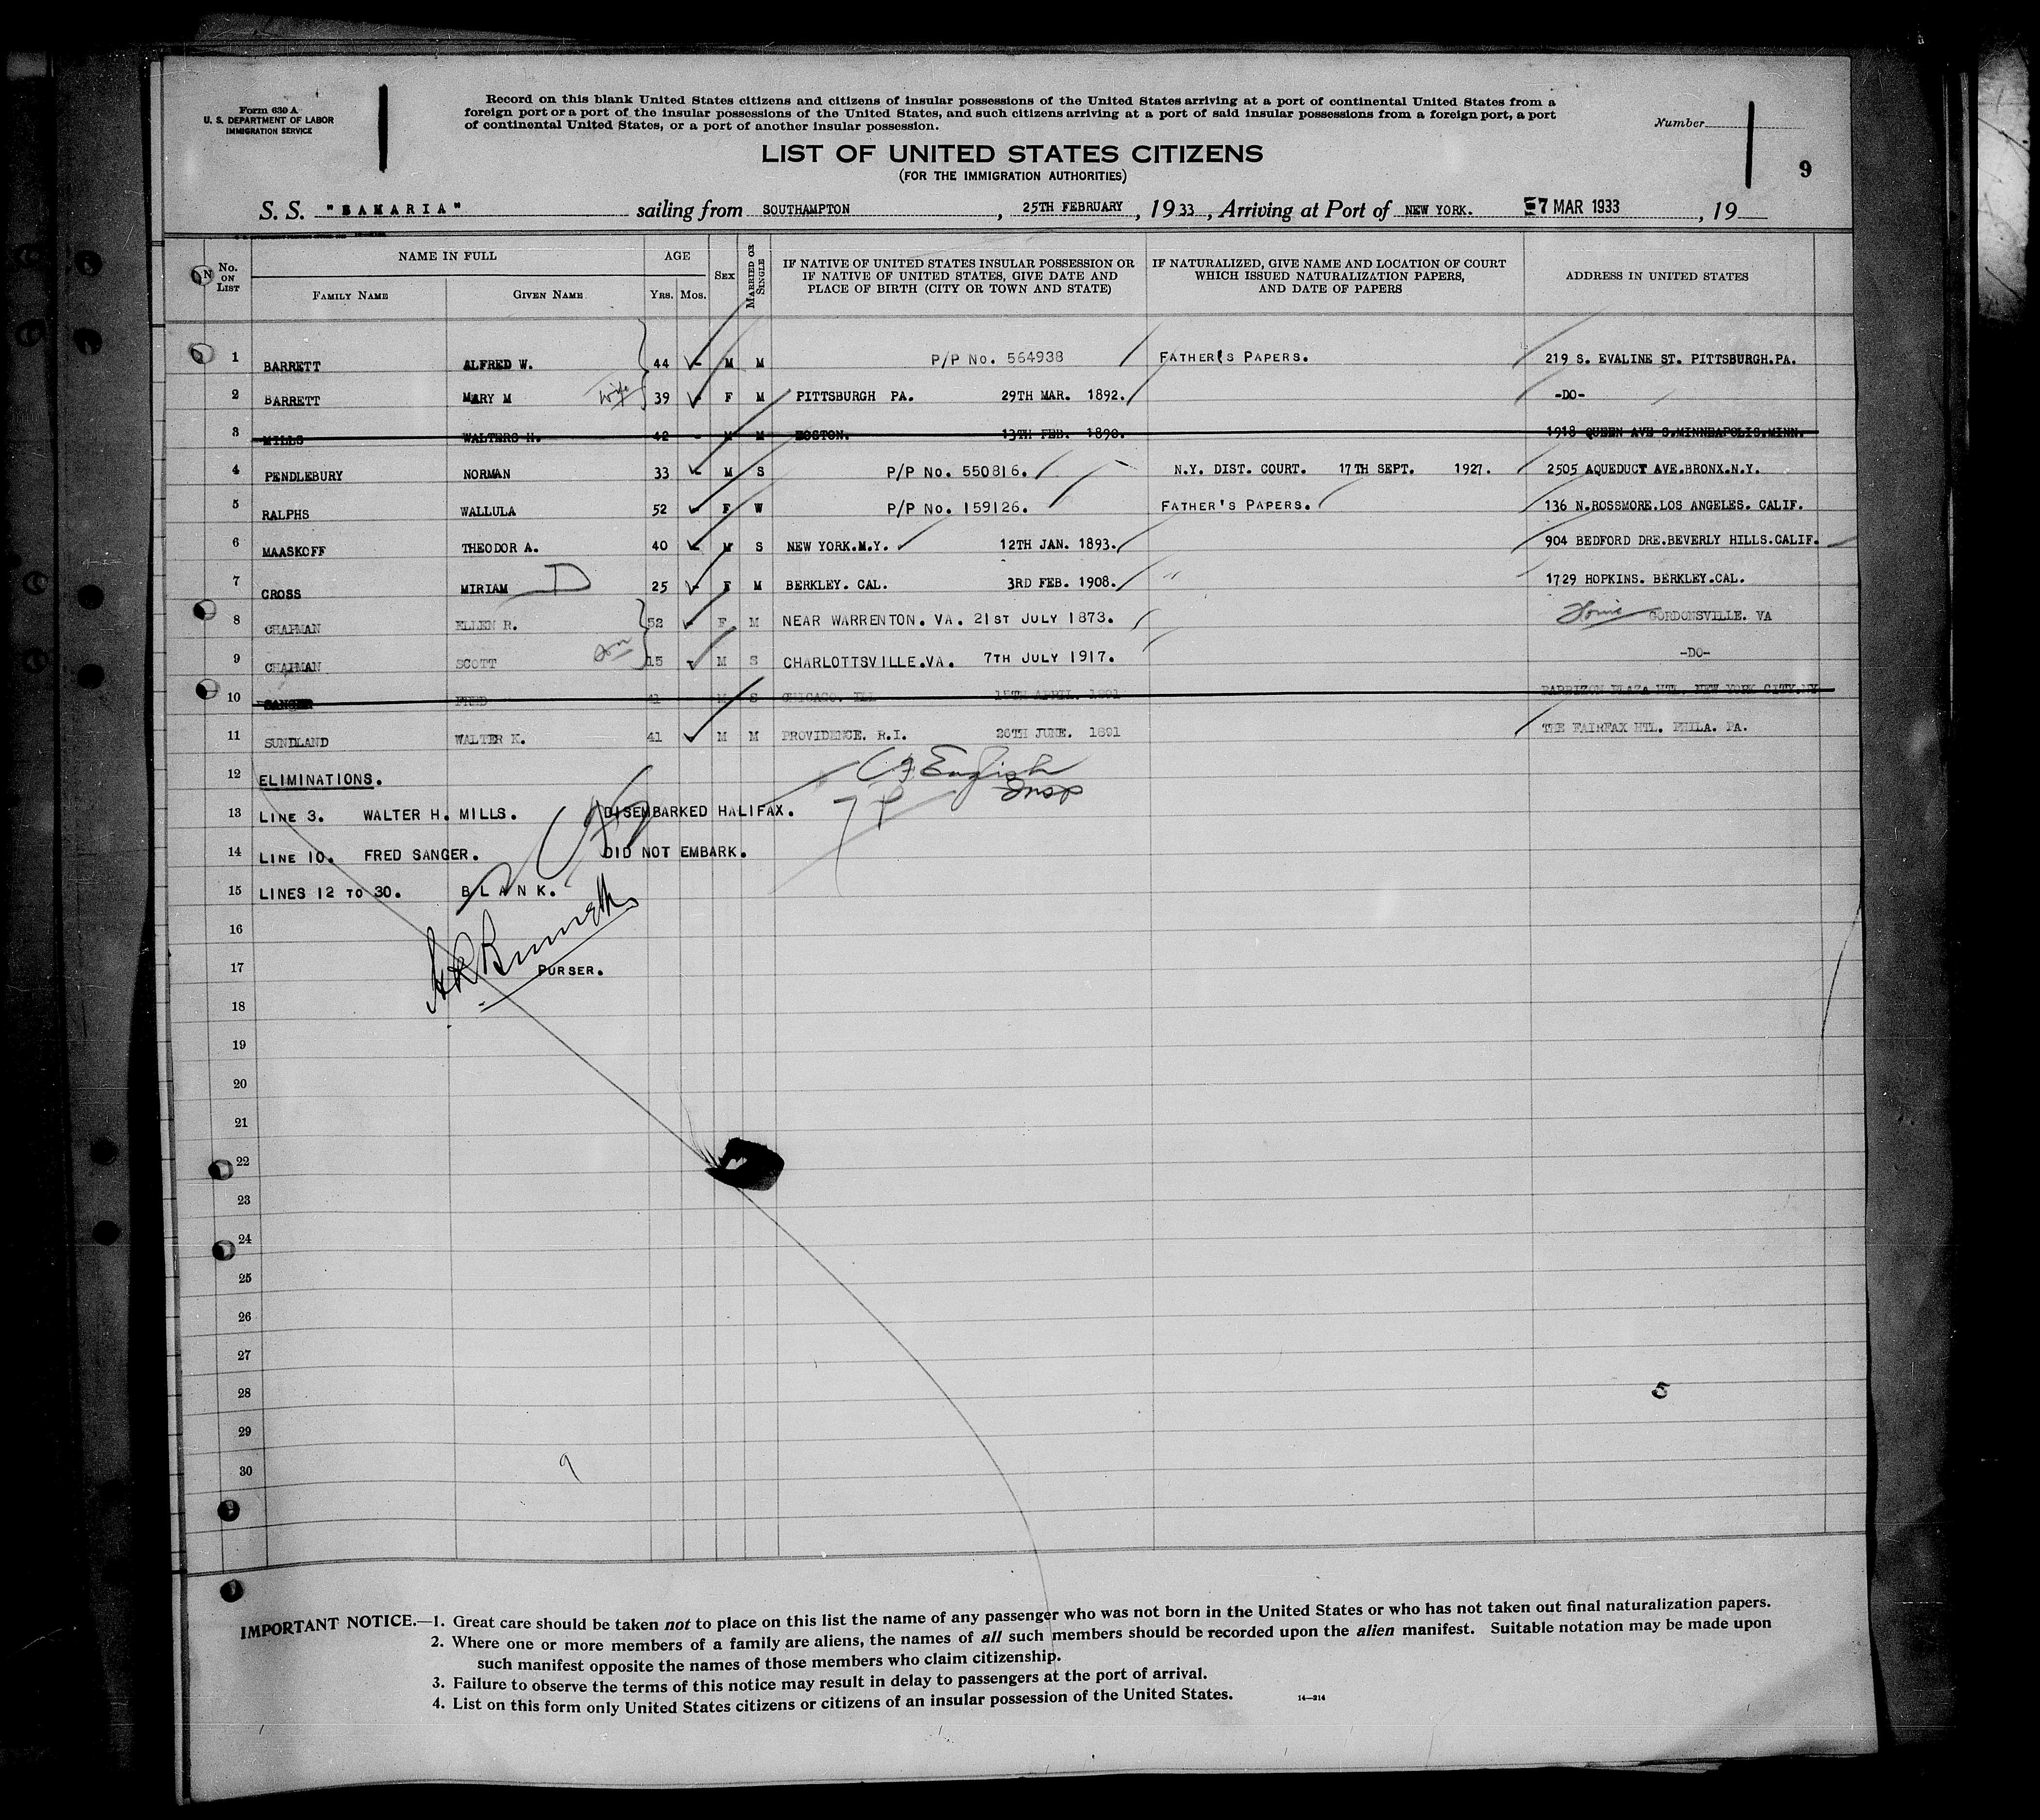 Form 630 A
U. S. DEPARTMENT OF LABOR
IMMIGRATION SERVICE
Record on this blank United States citizens and citizens of insular possessions of the United States arriving at a port of continental United States from a
foreign port or a port of the insular possessions of the United States, and such citizens arriving at a port of said insular possessions from a foreign port, a port
of continental United States, or a port of another insular possession.
Number
LIST OF UNITED STATES CITIZENS
(FOR THE IMMIGRATION AUTHORITIES)
9
S. S. "SAMARIA" sailing from SOUTHAMPTON, 25TH FEBRUARY, 1933, Arriving at Port of NEW YORK. 7 MAR 1933, 19
No. ON LIST NAME IN FULL FAMILY NAME GIVEN NAME AGE YRS. MOS. SEX MARRIED OR SINGLE IF NATIVE OF UNITED STATES INSULAR POSSESSION OR IF NATIVE OF UNITED STATES, GIVE DATE AND PLACE OF BIRTH (CITY OR TOWN AND STATE) IF NATURALIZED, GIVE NAME AND LOCATION OF COURT WHICH ISSUED NATURALIZATION PAPERS, AND DATE OF PAPERS ADDRESS IN UNITED STATES
1 BARRETT ALFRED W. 44 - M M P/P No. 564938 FATHER'S PAPERS. 219 S. EVALINE ST. PITTSBURGH.PA.
2 BARRETT MARY M wife 39 - F M PITTSBURGH PA. 29TH MAR. 1892. -DO-
3 MILLS WALTERS H. 42 - M M BOSTON. 13TH FEB. 1890. 1918 QUEEN AVE S.MINNEAPOLIS.MINN.
4 PENDLEBURY NORMAN 33 - M S P/P No. 550816. N.Y. DIST. COURT. 17TH SEPT. 1927. 2505 AQUEDUCT AVE.BRONX.N.Y.
5 RALPHS WALLULA 52 - F W P/P No. 159126. FATHER'S PAPERS. 136 N.ROSSMORE.LOS ANGELES. CALIF.
6 MAASKOFF THEODOR A. 40 - M S NEW YORK.N.Y. 12TH JAN. 1893. 904 BEDFORD DRE.BEVERLY HILLS.CALIF.
7 CROSS MIRIAM D 25 - F M BERKLEY. CAL. 3RD FEB. 1908. " 1729 HOPKINS. BERKLEY.CAL.
8 CHAPMAN ELLEN R. 52 F M NEAR WARRENTON. VA. 21ST JULY 1873. Home GORDONSVILLE. VA
9 CHAPMAN SCOTT son 15 M S CHARLOTTSVILLE.VA. 7TH JULY 1917. -DO-
10 SANGER FRED 41 M S CHICAGO. ILL 15TH APRIL. 1891 BARBIZON PLAZA HTL. NEW YORK CITY.NY
11 SUNDLAND WALTER K. 41 M M PROVIDENCE. R.I. 20TH JUNE. 1891 THE FAIRFAX HTL. PHILA. PA.
12 ELIMINATIONS. English Insp
13 LINE 3. WALTER H. MILLS. DISEMBARKED HALIFAX.
14 LINE 10. FRED SANGER. DID NOT EMBARK.
15 LINES 12 TO 30. BLANK.
16
17 PURSER.
18
19
20
21
22
23
24
25
26
27
28 5
29
30 9
IMPORTANT NOTICE.—1. Great care should be taken not to place on this list the name of any passenger who was not born in the United States or who has not taken out final naturalization papers.
2. Where one or more members of a family are aliens, the names of all such members should be recorded upon the alien manifest. Suitable notation may be made upon
such manifest opposite the names of those members who claim citizenship.
3. Failure to observe the terms of this notice may result in delay to passengers at the port of arrival.
4. List on this form only United States citizens or citizens of an insular possession of the United States. 14—314